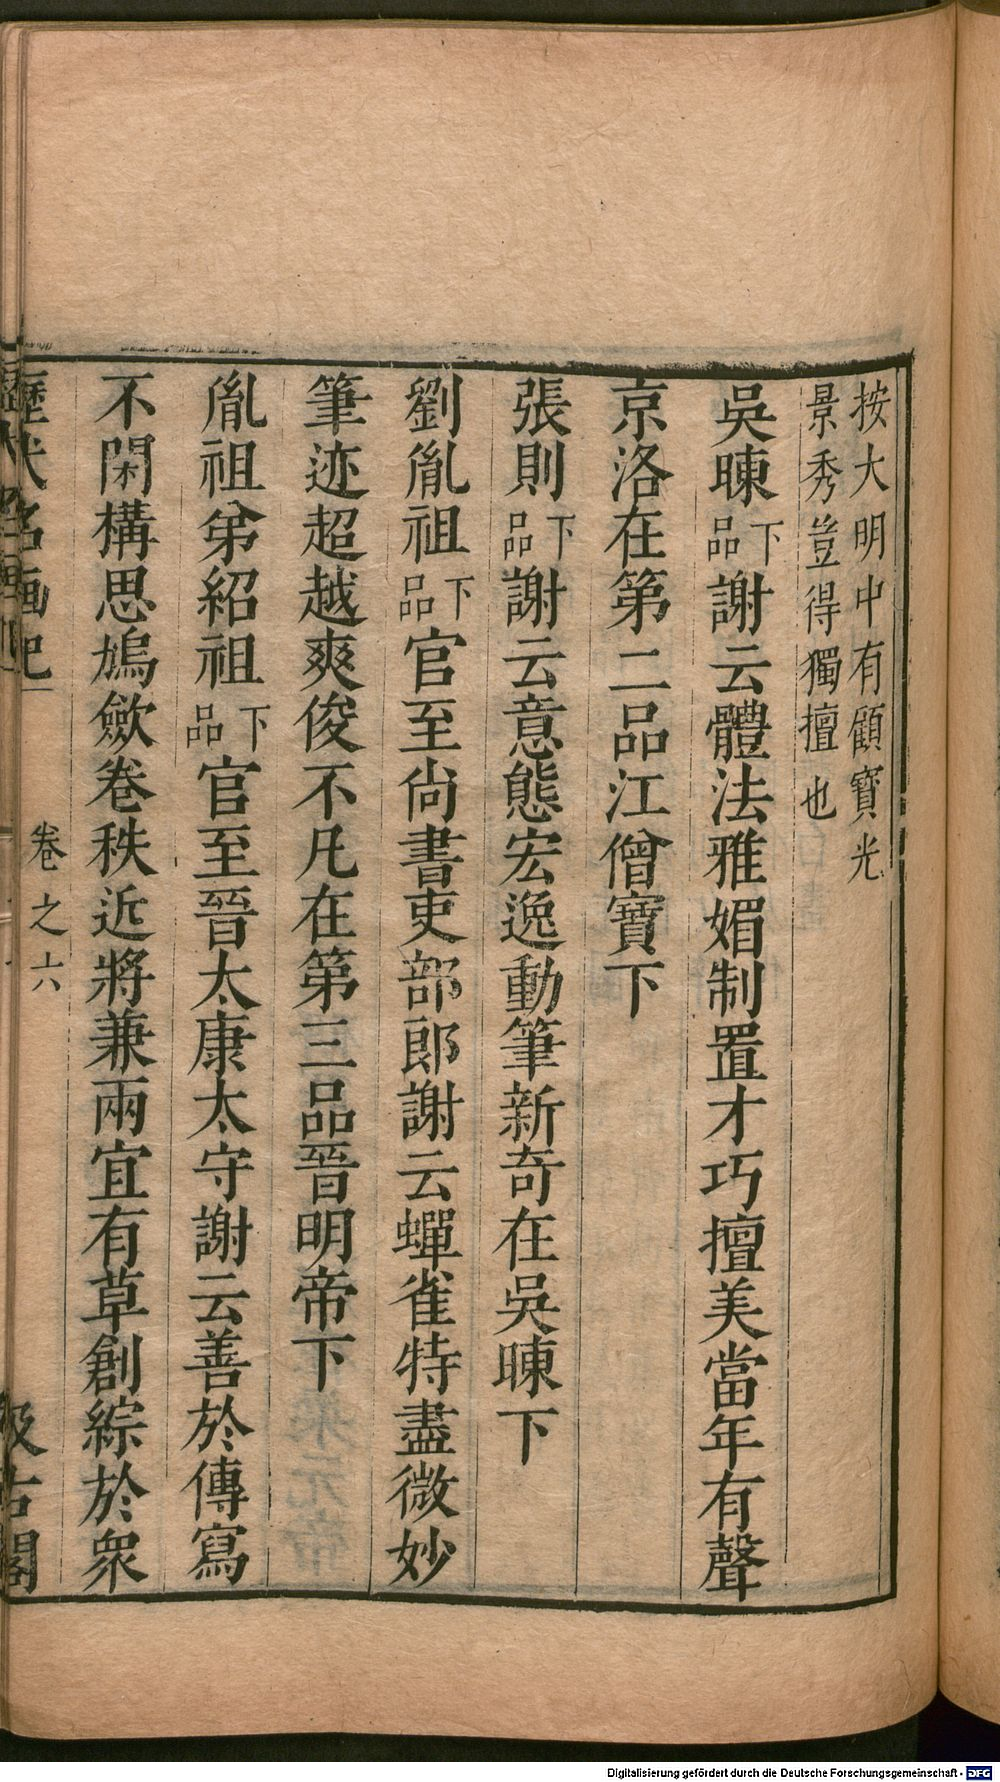 按大明中有顧寶光
景秀豈得獨擅也
吳暕下品謝云體法雅媚制置才巧擅美當年有聲
京洛在第二品江僧寶下
張則下品謝云意態宏逸動筆新奇在吳暕下
劉胤祖下品官至尚書吏部郎謝云蟬雀特盡微妙
筆迹超越爽俊不凡在第三品晉明帝下
胤祖弟紹祖下品官至晉太康太守謝云善於傳寫
不閑構思鳩斂卷秩近將兼兩宜有草創綜於衆
歷代名画記
卷之六
汲古閣
Digitalisierung gefördert durch die Deutsche Forschungsgemeinschaft - DFG